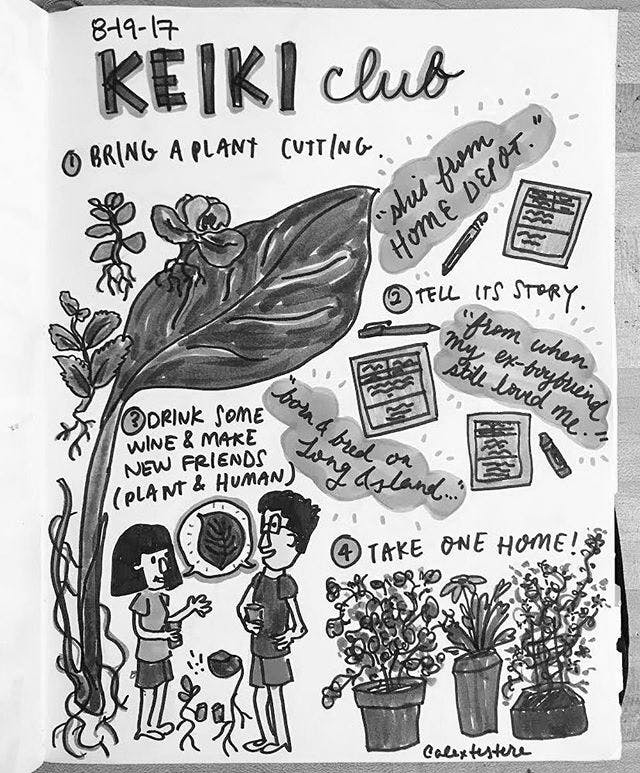 8-19-17
KEIKI club
① BRING A PLANT CUTTING.
"she's from
HOME DEPOT."
② TELL ITS STORY.
"from when
my ex-boyfriend
still loved me."
"born & bred on
Long Island..."
③ DRINK SOME
WINE & MAKE
NEW FRIENDS
(PLANT & HUMAN)
④ TAKE ONE HOME!
@alextestere